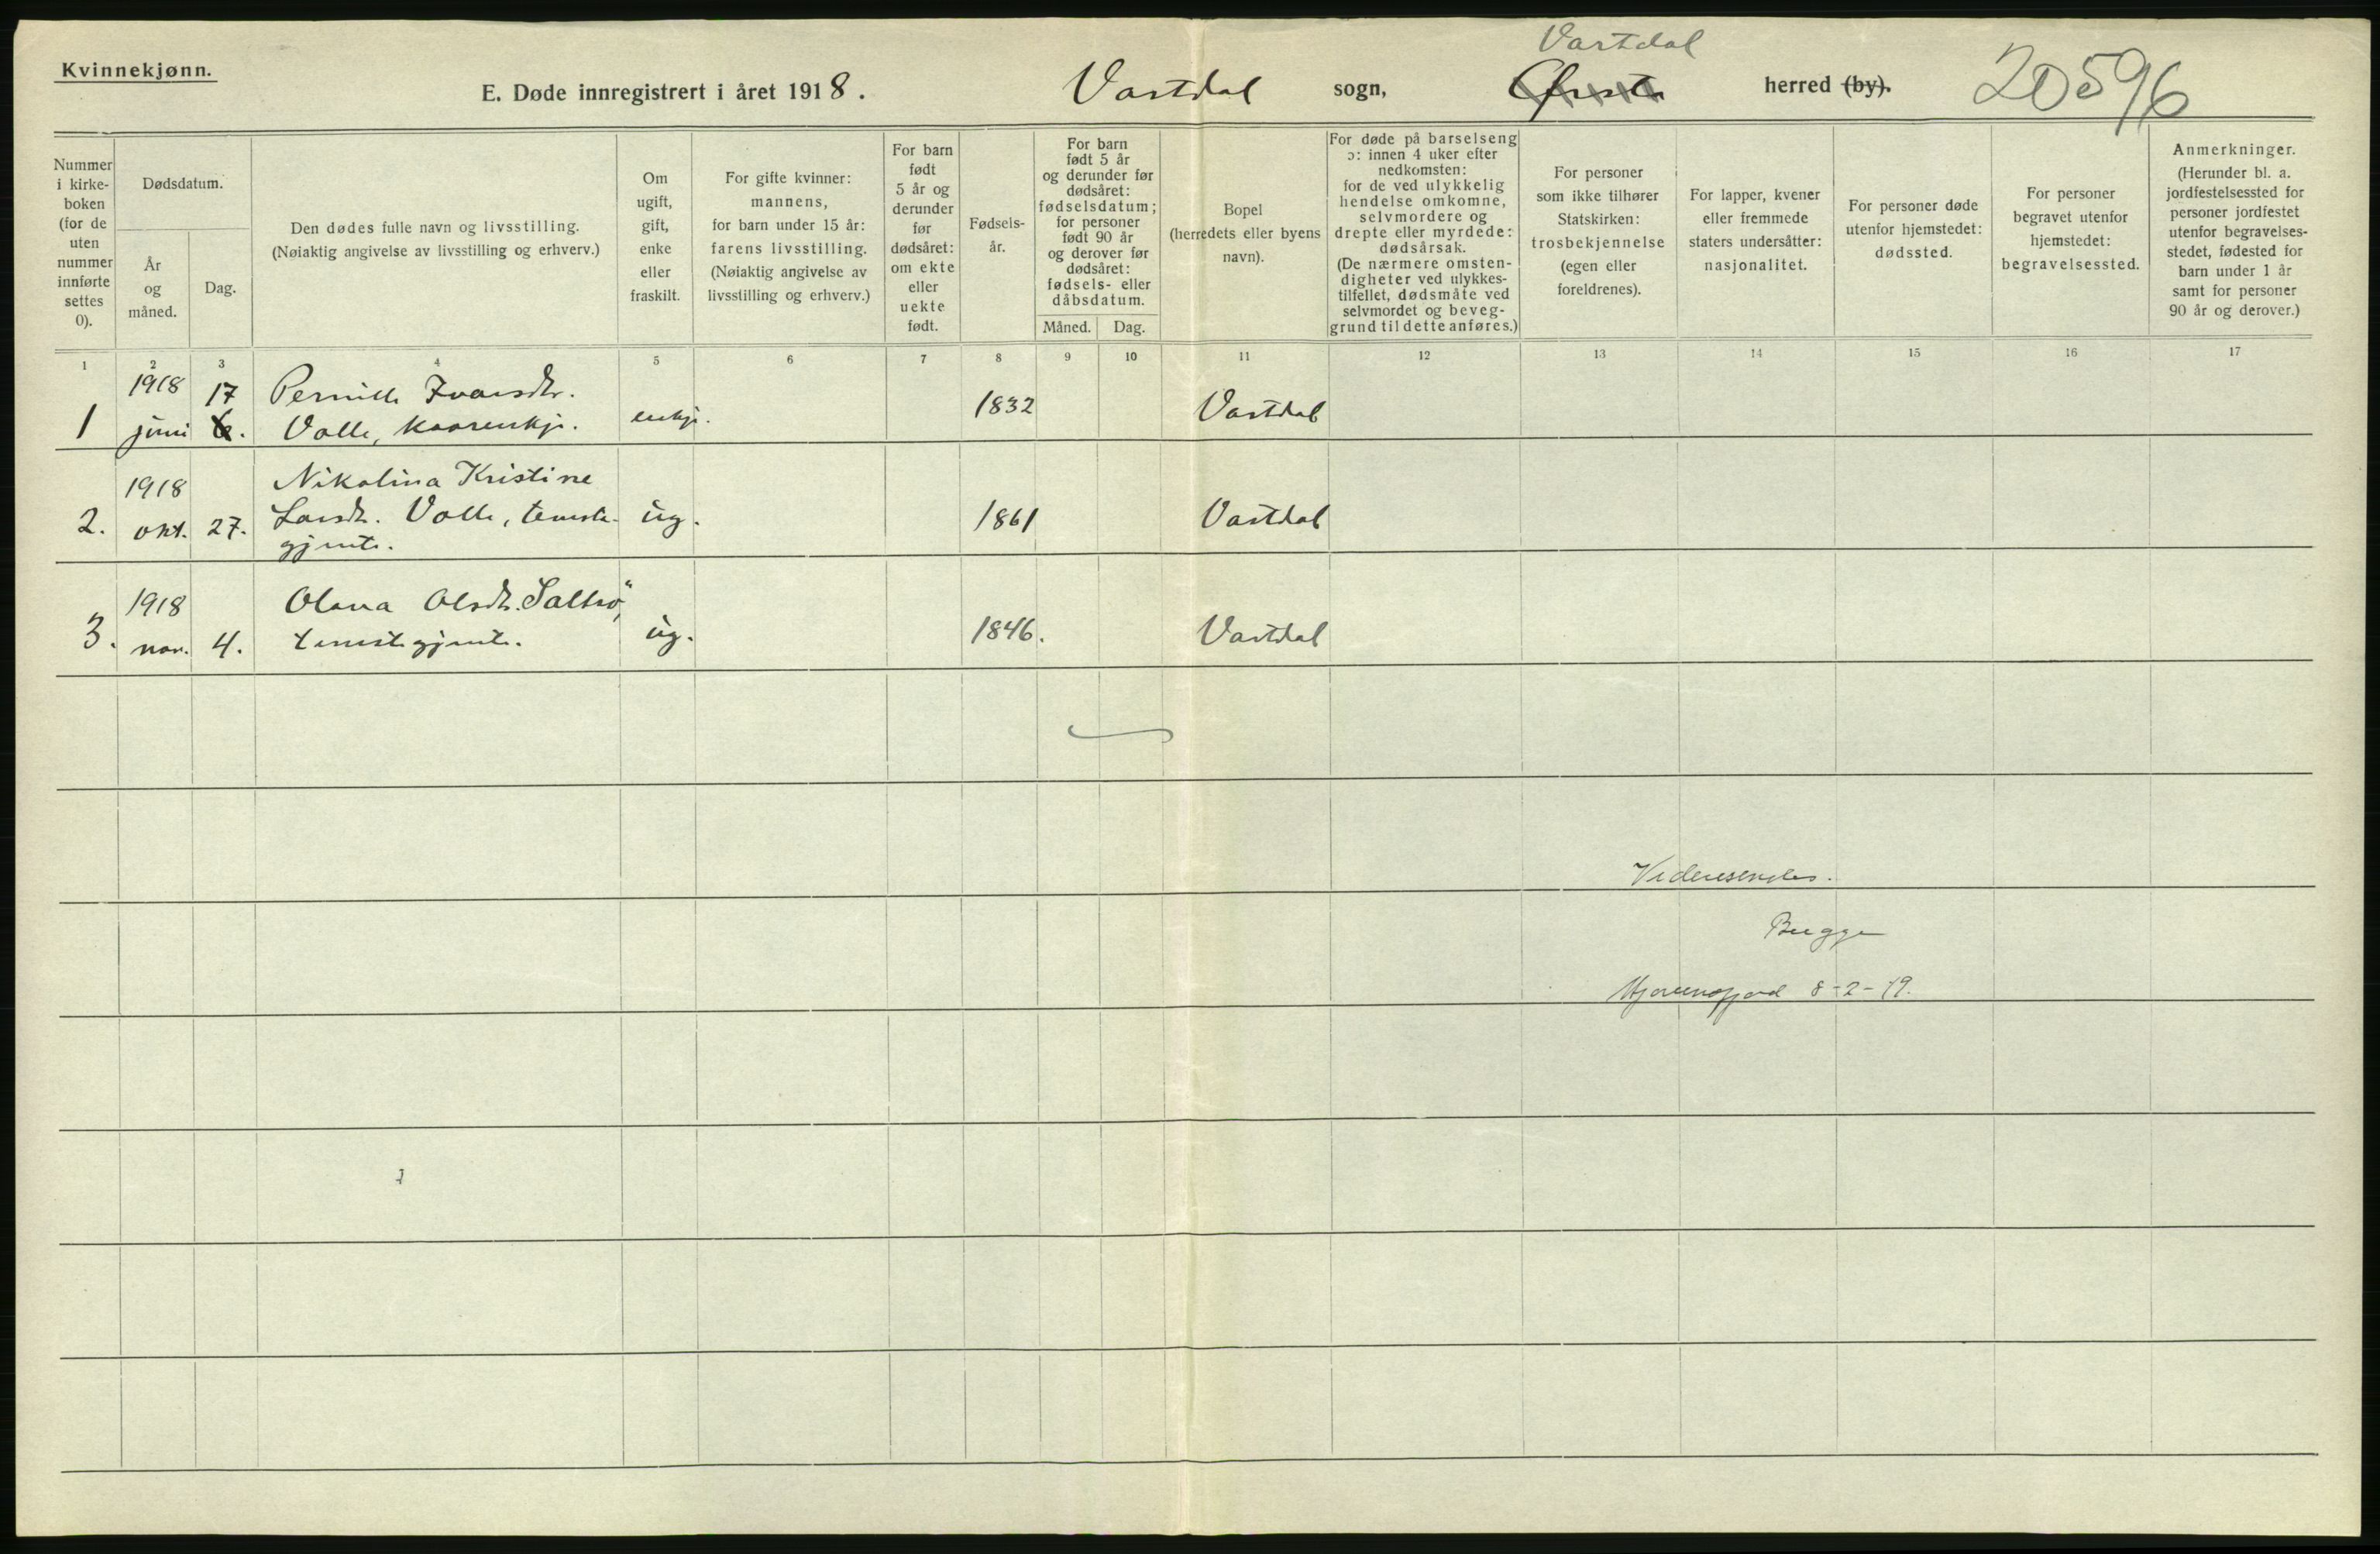 Kvinnekjønn.
E. Døde innregistrert i året 1918.
Vartdal sogn,
Vartdal
Ørsta herred (by).
20596
Nummer i kirke-boken (for de uten nummer innførte settes 0).
Dødsdatum.
År og måned.
Dag.
Den dødes fulle navn og livsstilling.
(Nøiaktig angivelse av livsstilling og erhverv.)
Om ugift, gift, enke eller fraskilt.
For gifte kvinner: mannens, for barn under 15 år: farens livsstilling. (Nøiaktig angivelse av livsstilling og erhverv.)
For barn født 5 år og derunder før dødsåret: om ekte eller uekte født.
Fødsels-år.
For barn født 5 år og derunder før dødsåret: fødselsdatum; for personer født 90 år og derover før dødsåret: fødsels- eller dåbsdatum.
Måned. Dag.
Bopel (herredets eller byens navn).
For døde på barselseng ɔ: innen 4 uker efter nedkomsten: for de ved ulykkelig hendelse omkomne, selvmordere og drepte eller myrdede: dødsårsak. (De nærmere omsten-digheter ved ulykkes-tilfellet, dødsmåte ved selvmordet og beveg-grund til dette anføres.)
For personer som ikke tilhører Statskirken: trosbekjennelse (egen eller foreldrenes).
For lapper, kvener eller fremmede staters undersåtter: nasjonalitet.
For personer døde utenfor hjemstedet: dødssted.
For personer begravet utenfor hjemstedet: begravelsessted.
Anmerkninger. (Herunder bl. a. jordfestelsessted for personer jordfestet utenfor begravelses-stedet, fødested for barn under 1 år samt for personer 90 år og derover.)
1 2 3 4 5 6 7 8 9 10 11 12 13 14 15 16 17
1918 17 Pernille Ivarsdtr.
1 juni 6. Volle, kaarenkje. enkje. 1832 Vartdal
1918 Nikolina Kristine
2. okt. 27. Larsdtr. Volle, teneste- ug. 1861 Vartdal
gjente.
1918 Olava Olsdtr. Saltrö,
3. nov. 4. tenestegjente. ug. 1846. Vartdal
Videresendes.
Bugge
8-2-19.